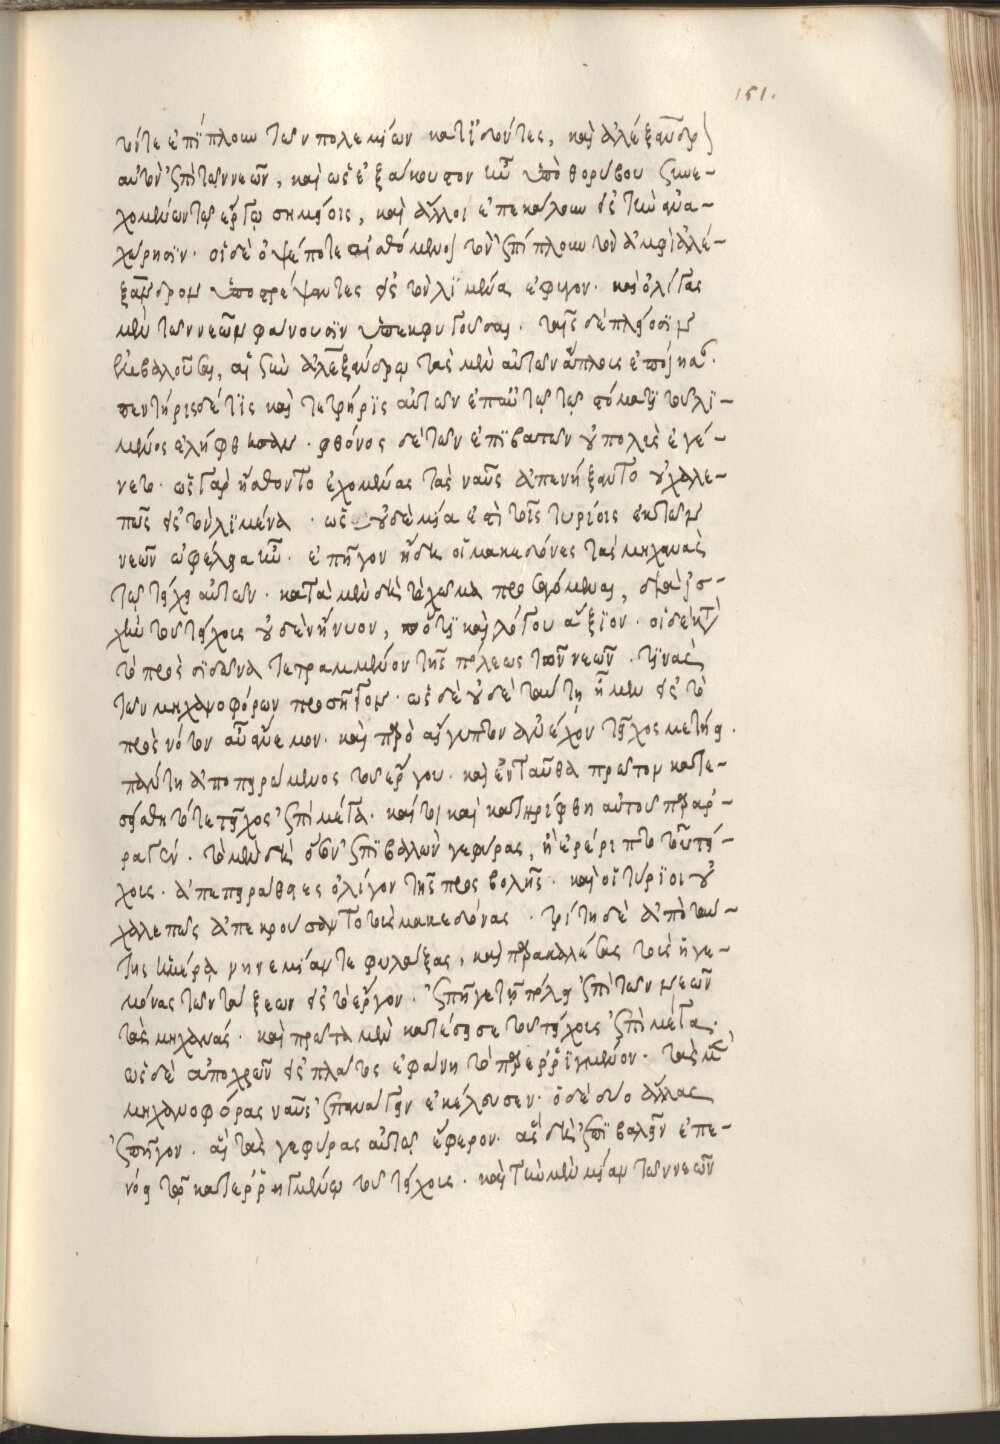 151.
τόν τε ἐπίπλουν τῶν πολεμίων κατιδόντες, καὶ ἀλέξανδρον
αὐτὸν ἐπὶ τῶν νεῶν, καὶ ὡς ἐξάκουστον ἦν ὑπὸ θορύβου ξυνε-
χομένων τε ἐν τῷ σημείοις, καὶ ἄλλοι ἐπεκάλουν ἐς τὴν ἀνα-
χώρησιν. οἱ δὲ ὀψέ ποτε αἰσθόμενοι τὸν ἐπίπλουν τὸν ἀμφὶ ἀλέ-
ξανδρον ὑποστρέψαντες ἐς τὸν λιμένα ἔφυγον. καὶ ὀλίγαι
μὲν τῶν νεῶν φαίνουσιν ὑπεκφυγοῦσαι. ταῖς δὲ πλείοσιν
ἐμβαλοῦσαι, αἱ ξὺν ἀλεξάνδρῳ τὰς μὲν αὐτῶν ἄπλους ἐποίησαν.
πεντήρης δέ τις καὶ τετρήρις αὐτῶν ἐπ' αὐτῷ τῷ στόματι τοῦ λι-
μένος ἐλήφθησαν. φθόνος δὲ τῶν ἐπιβατῶν οὐ πολὺς ἐγέ-
νετο. ὡς γὰρ ᾔσθοντο ἐχομένας τὰς ναῦς ἀπενήξαντο οὐ χαλε-
πῶς ἐς τὸν λιμένα. ὡς οὐδὲ μία ἔτι τοῖς τυρίοις ἐκ τῶν
νεῶν ὠφέλεια ἦν. ἐπῆγον ἤδη οἱ μακεδόνες τὰς μηχανὰς
τῷ τείχει αὐτῶν. κατὰ μὲν δὴ τὸ χῶμα προσαγόμεναι, διὰ ἰσ-
χὺν τοῦ τείχους οὐδὲν ἤνυον, ὅτι καὶ λόγου ἄξιον. οἱ δὲ κατὰ
τὸ πρὸς σιδῶνα τετραμμένον τῆς πόλεως τῶν νεῶν. τινὰς
τῶν μηχανοφόρων προσῆγον. ὡς δὲ οὐδὲ ταύτῃ ἤνυεν ἐς τὸ
πρὸς νότον αὖ ἄνεμον. καὶ πρὸς αἴγυπτον ἀνέχον τεῖχος μετῄει.
πάντη ἀποπειρώμενος τοῦ ἔργου. καὶ ἐνταῦθα πρῶτον κατε-
σείσθη τό τε τεῖχος ἐπὶ μέγα. καί τι καὶ κατηρίφθη αὐτοῦ παραρ-
ραγέν. τὸ μὲν δὴ ὅσον ἐπιβαλὼν γεφύρας, ᾗ ἐρέριπτο τοῦ τεί-
χους. ἀπεπειράθη ἐς ὀλίγον τῆς προσβολῆς. καὶ οἱ τύριοι οὐ
χαλεπῶς ἀπεκρούσαντο τοὺς μακεδόνας. τρίτη δὲ ἀπὸ ταύ-
της ἡμέρᾳ νηνεμίαν τε φυλάξας, καὶ παρακαλέσας τοὺς ἡγε-
μόνας τῶν τάξεων ἐς τὸ ἔργον. ἐπῆγε τῇ πόλει ἐπὶ τῶν νεῶν
τὰς μηχανάς. καὶ πρῶτα μὲν κατέσεισε τοῦ τείχους ἐπὶ μέγα.
ὡς δὲ ἀποχρῶν ἐς πλάτος ἐφάνη τὸ παρερρηγμένον. τὰς μὲν
μηχανοφόρας ναῦς ἐπαναγεῖν ἐκέλευσεν. ὁ δὲ δύο ἄλλας
ἐπῆγον. αἳ τὰς γεφύρας αὐτῷ ἔφερον. ἃς δὴ ἐπιβαλεῖν ἐπε-
νόει τῷ κατερρηγμένῳ τοῦ τείχους. καὶ τὴν μὲν μίαν τῶν νεῶν